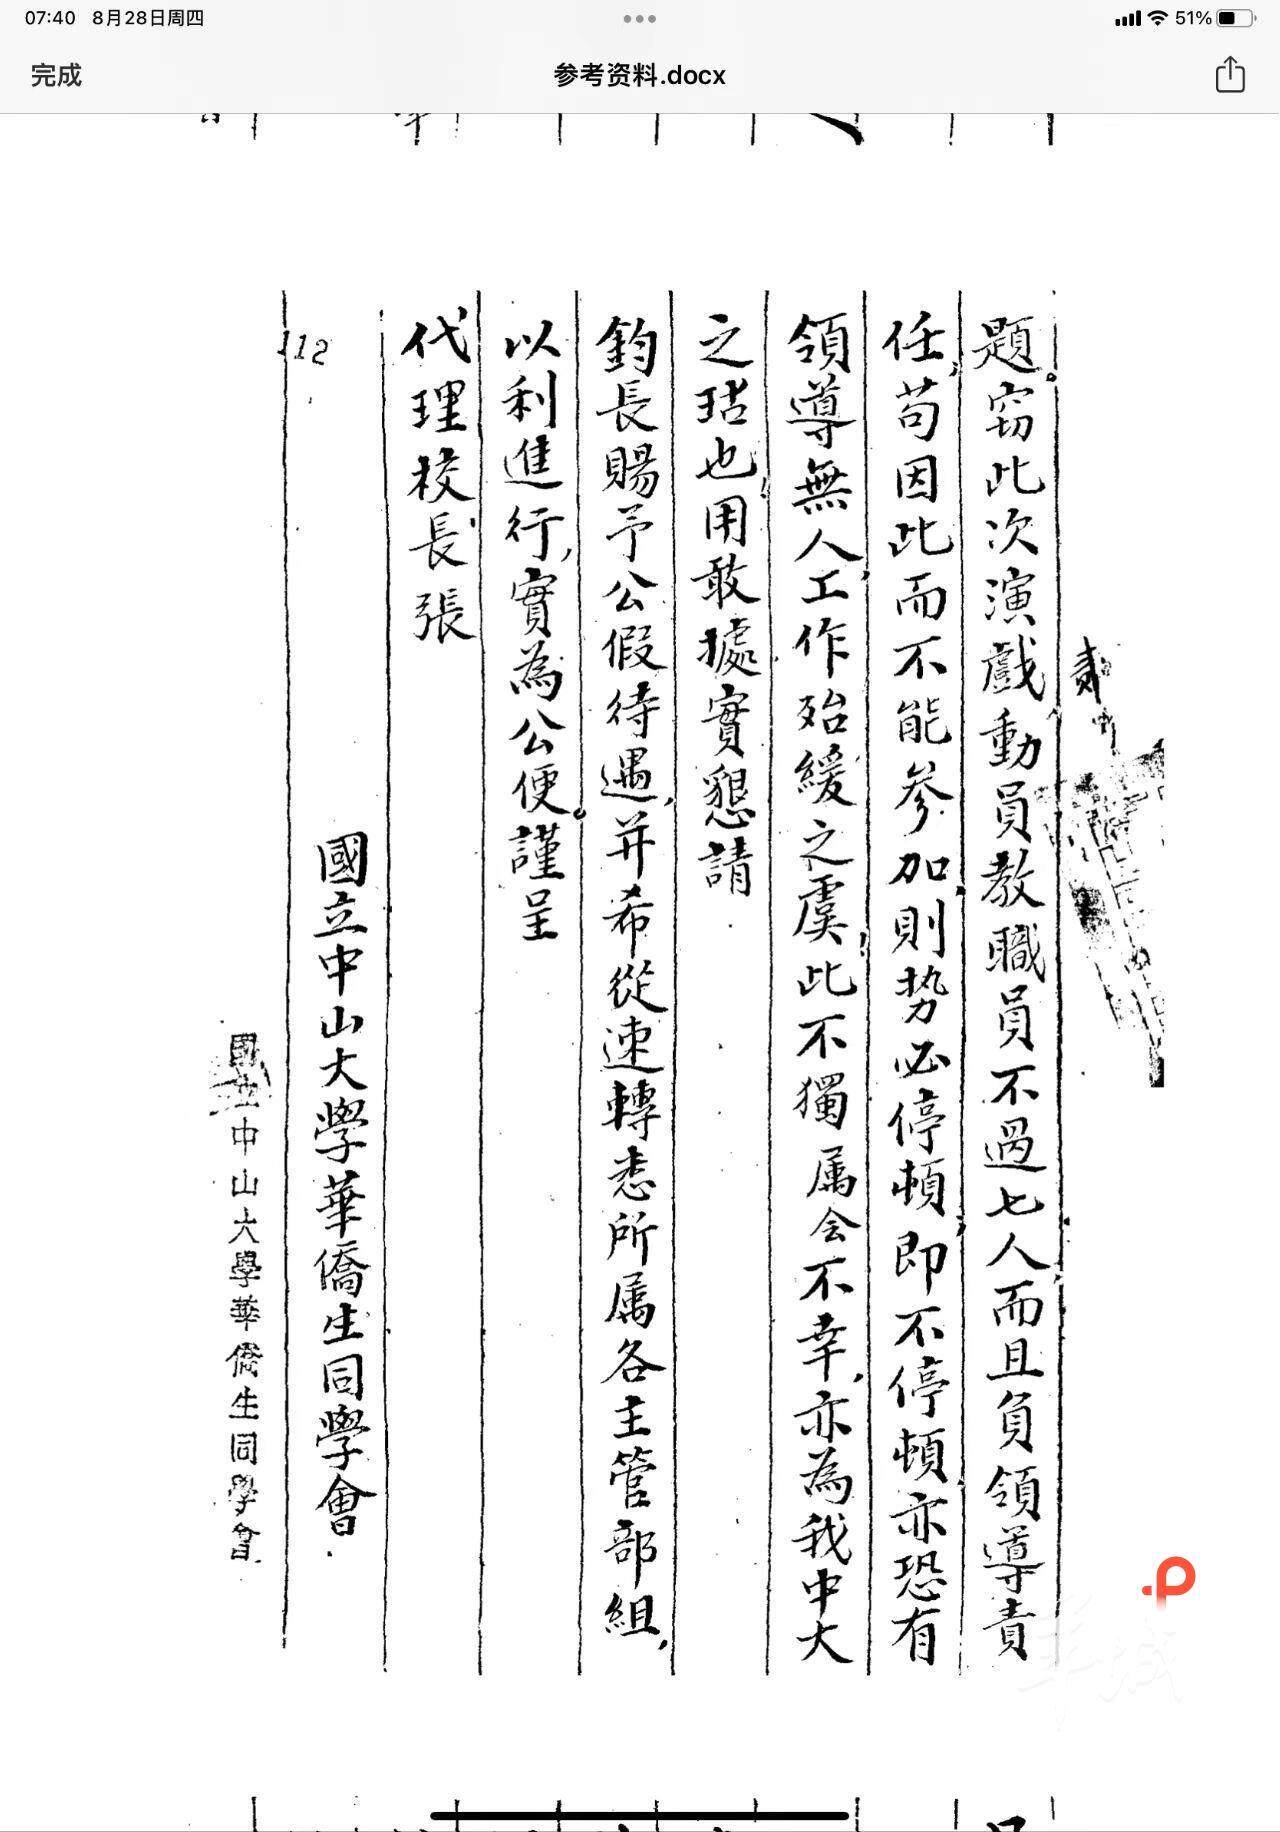 07:40 8月28日周四
51%
完成
参考资料.docx
題。窃此次演戲動員教職員不過七人,而且負領導責
任,苟因此而不能參加,則势必停頓,即不停頓,亦恐有
領導無人,工作殆緩之虞,此不獨属会不幸,亦為我中大
之玷也,用敢據實懇請
鈞長賜予公假待遇,并希從速轉悉所属各主管部組,
以利進行,實為公便。謹呈
代理校長張
國立中山大學華僑生同學會
112
國立中山大學華僑生同學會